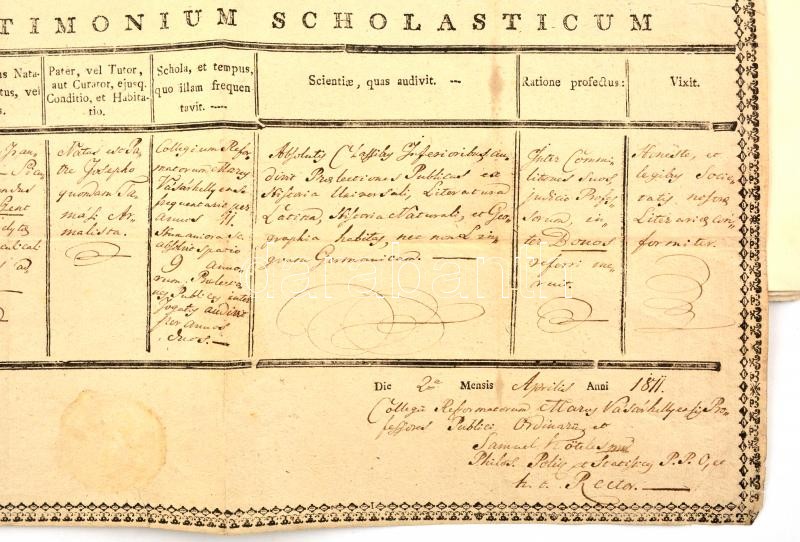 TIMONIUM SCHOLASTICUM
us Nata-
tus, vei
s.
Pater, vel Tutor,
aut Curator, ejusq.
Conditio, et Habita-
tio.
Schola, et tempus,
quo illam frequen-
tavit. —
Scientiæ, quas audivit. —
Ratione profectus:
Vixit.
Natus est Pa-
tre Josepho
quondam Ta-
masi Ar-
malista.
Collegium Refor-
matorum Maros
Vásárhellyense
frequentavit per
annos 11.
Humaniora
absolvit spatio
9 anno-
rum. Praelectio-
nes Publicas inter
Togatos audivit
per annos
duos. —
Absolutis Classibus Inferioribus au-
divit Praelectiones Publicas ex
Historia Universali, Literatura
Latina, Historia Naturali, et Geo-
graphia habitas, nec non Lin-
guam Germanicam. —
Inter Commi-
litones suos
judicio Profes-
sorum, in-
ter Bonos
referri me-
ruit.
Honeste, et
legibus Socie-
tatis nostrae
Literariae con-
formiter.
Die 2a Mensis Aprilis Anni 1811.
Collegii Reformatorum Maros Vásárhellyensis Pro-
fessores Publici Ordinarii et
Samuel Köteles
Philos. Polit. et Statist. P. P. O. et
h. t. Rector. —
darabanth